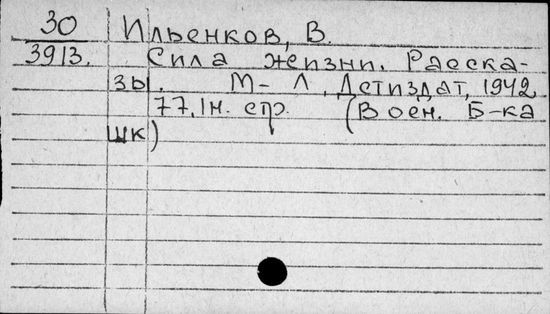 30 Ильенков, В.
3913. Сила жизни. Расска-
зы. М-Л, Детиздат, 1942
77, 1н. стр. (Воен. Б-ка
шк)